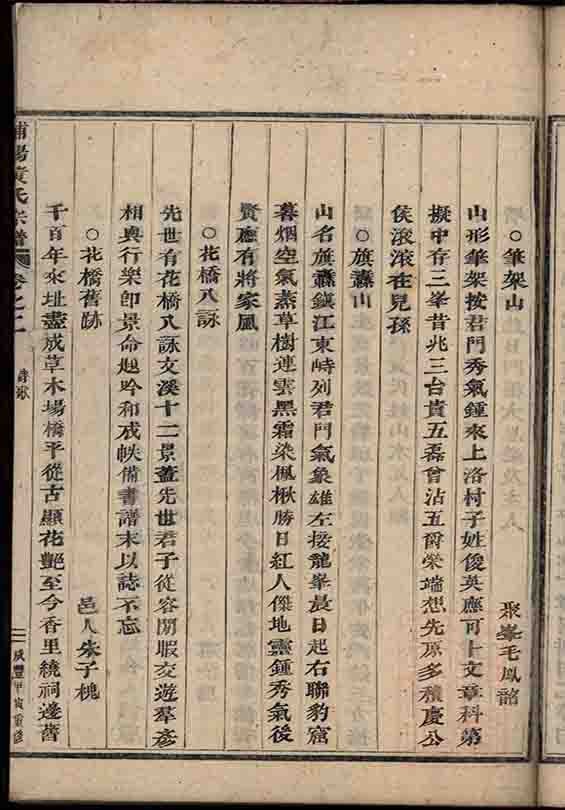 ○筆架山
聚峯毛鳳韶
山形筆架按君門秀氣鍾來上洛村子姓俊英應可卜文章科第
擬中存三峯昔兆三台貴五磊曾沾五爵榮端想先原多積慶公
侯滾滾在兒孫
○旗纛山
山名旗纛鎮江東峙列君門氣象雄左接龍峯晨日起右聯豹窟
暮烟空氣蒸草樹連雲黑霜染楓楸勝日紅人傑地靈鍾秀氣後
賢應有將家風
○花橋八詠
先世有花橋八詠文溪十二景蓋先世君子從容閒暇交遊羣彥
相與行樂卽景命題吟和成帙備書譜末以誌不忘
○花橋舊跡
邑人朱子槐
千百年來址盡成草木場橋平從古顯花艷至今香里繞祠邊舊
浦陽黃氏宗譜
卷之二
詩歌
二
咸豐甲寅重修